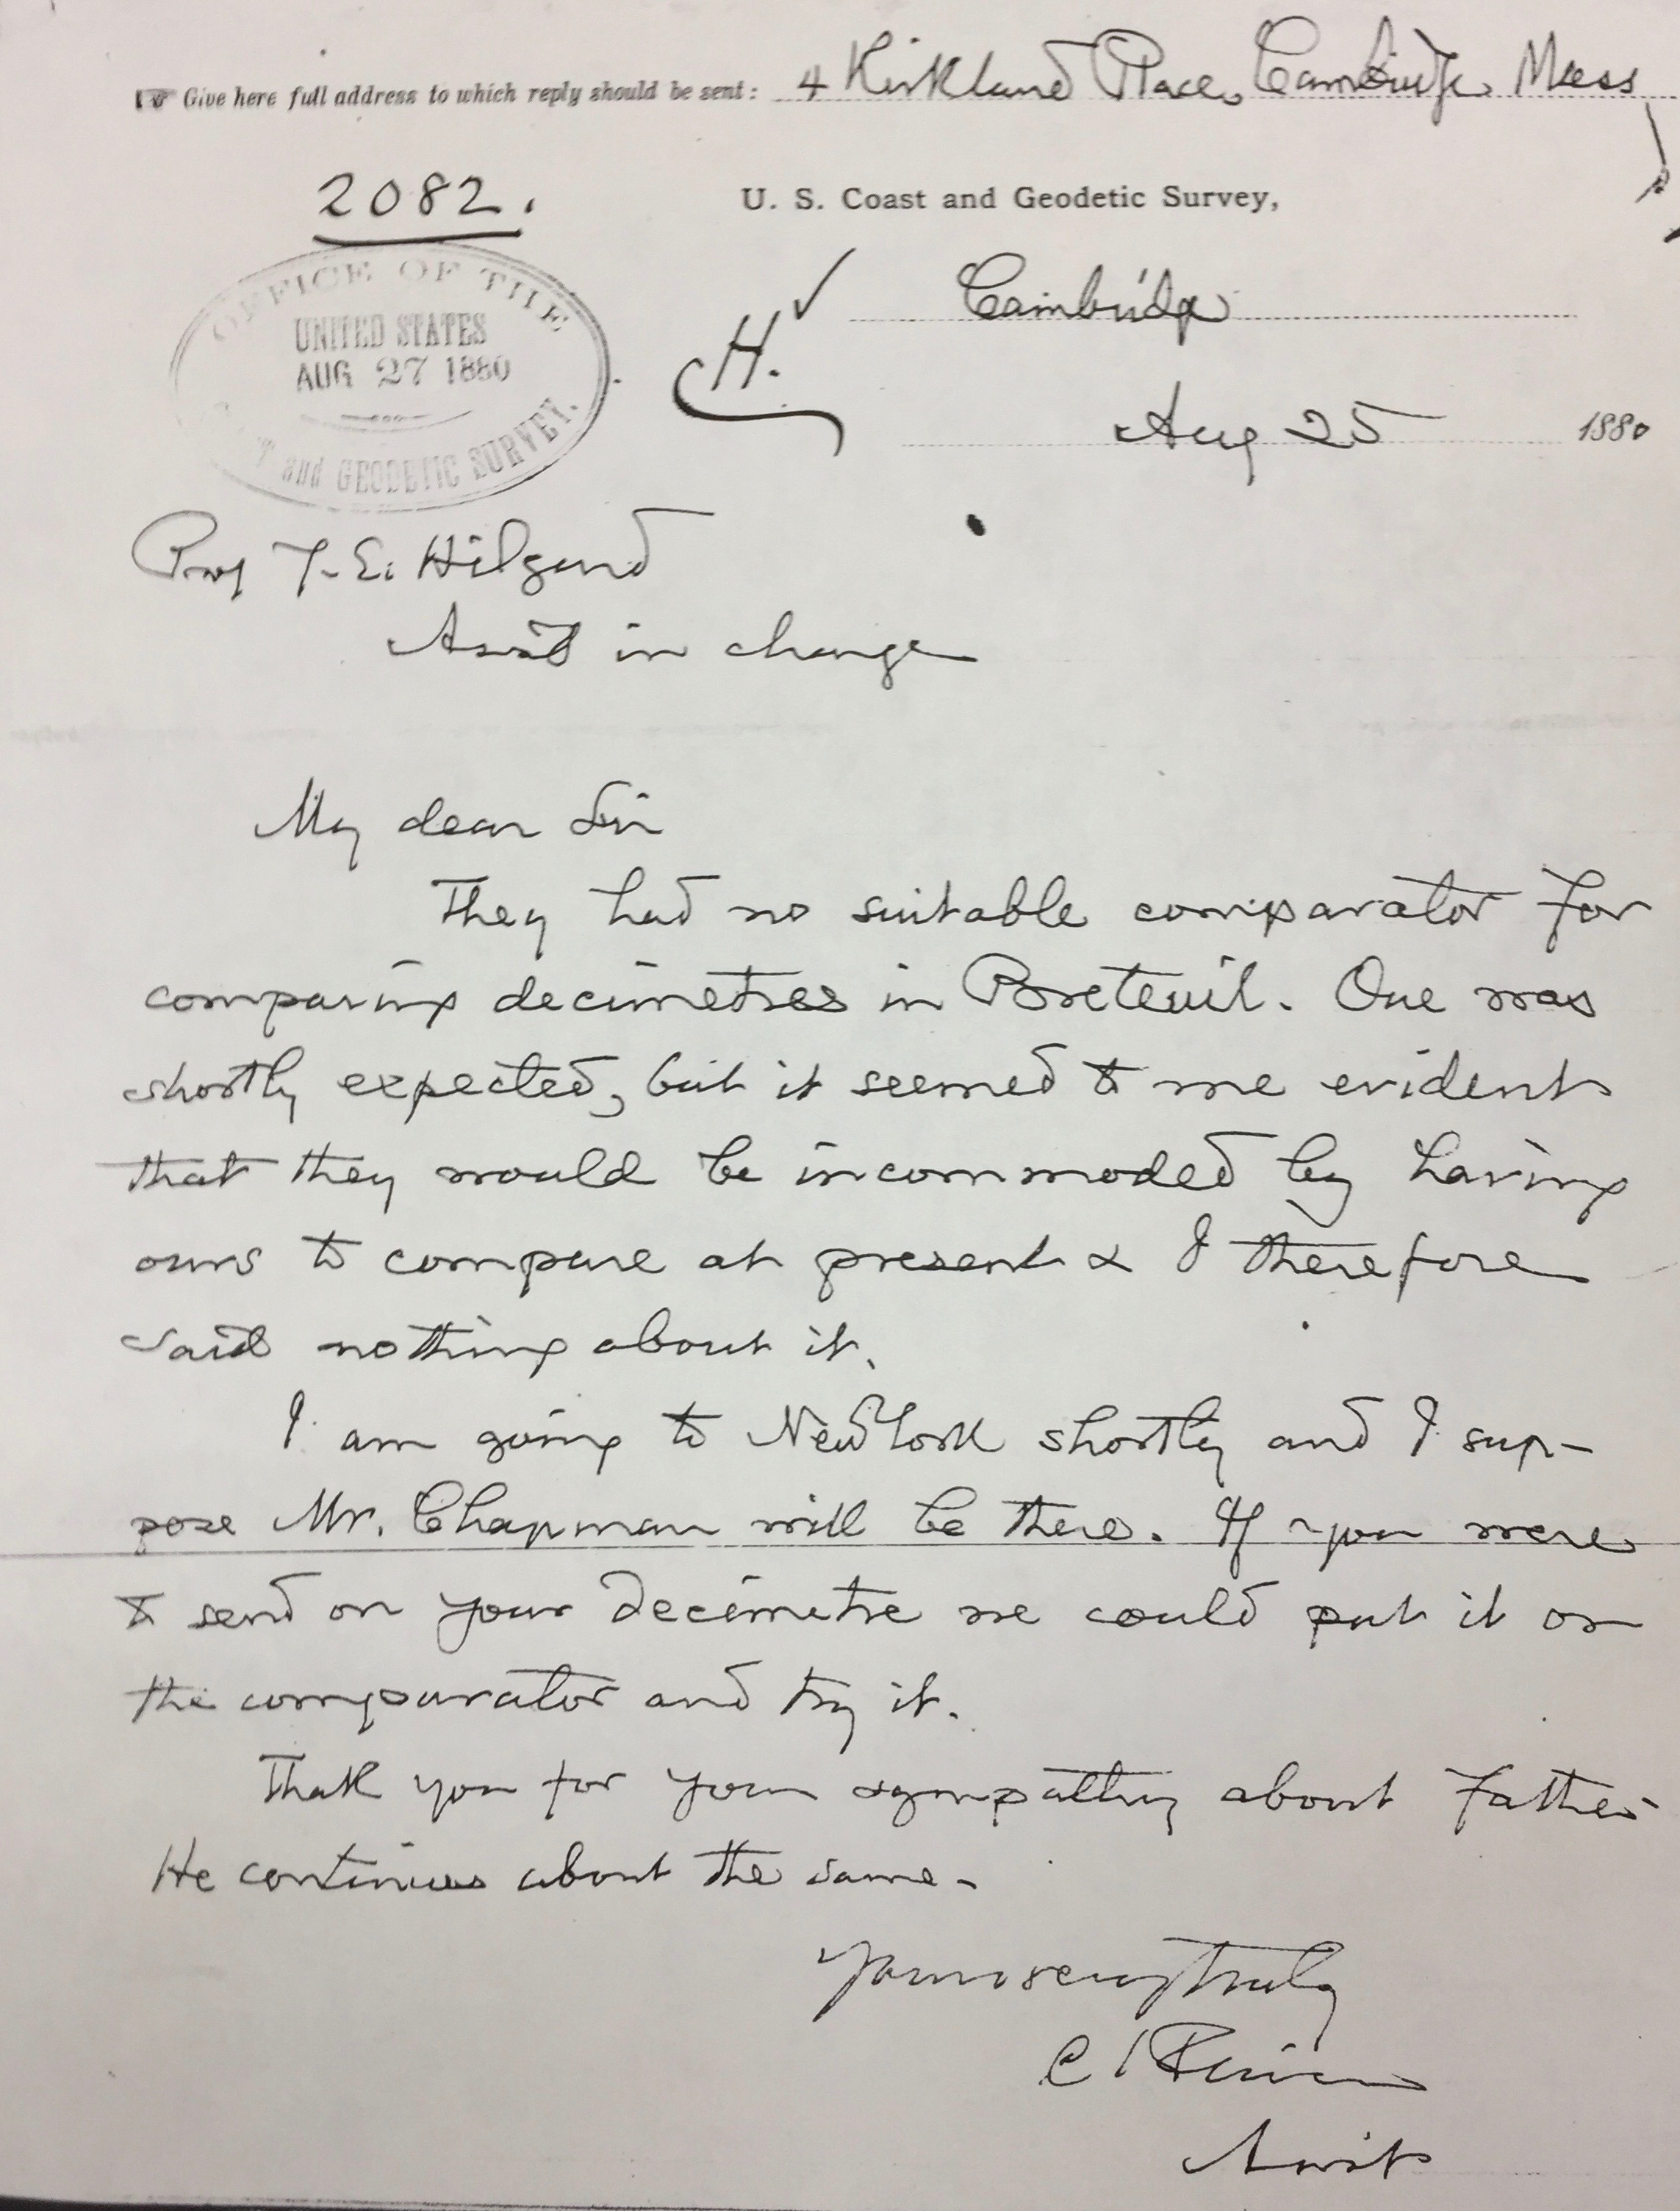 Give here full address to which reply should be sent: 4 Kirkland Place, Cambridge, Mass
2082.
U. S. Coast and Geodetic Survey,
OFFICE OF THE
UNITED STATES
AUG 27 1880
and GEODETIC SURVEY.
H. ✓
Cambridge
Aug 25 1880
Prof J. E. Hilgard
Assist in charge
My dear Sir
They had no suitable comparator for
comparing decimetres in Breteuil. One was
shortly expected, but it seemed to me evident
that they would be incommoded by having
ours to compare at present & I therefore
said nothing about it.
I am going to New York shortly and I sup-
pose Mr. Chapman will be there. If you were
to send on your decimetre we could put it on
the comparator and try it.
Thank you for your sympathy about Father
He continues about the same.
Yours very truly
C S Peirce
Assist